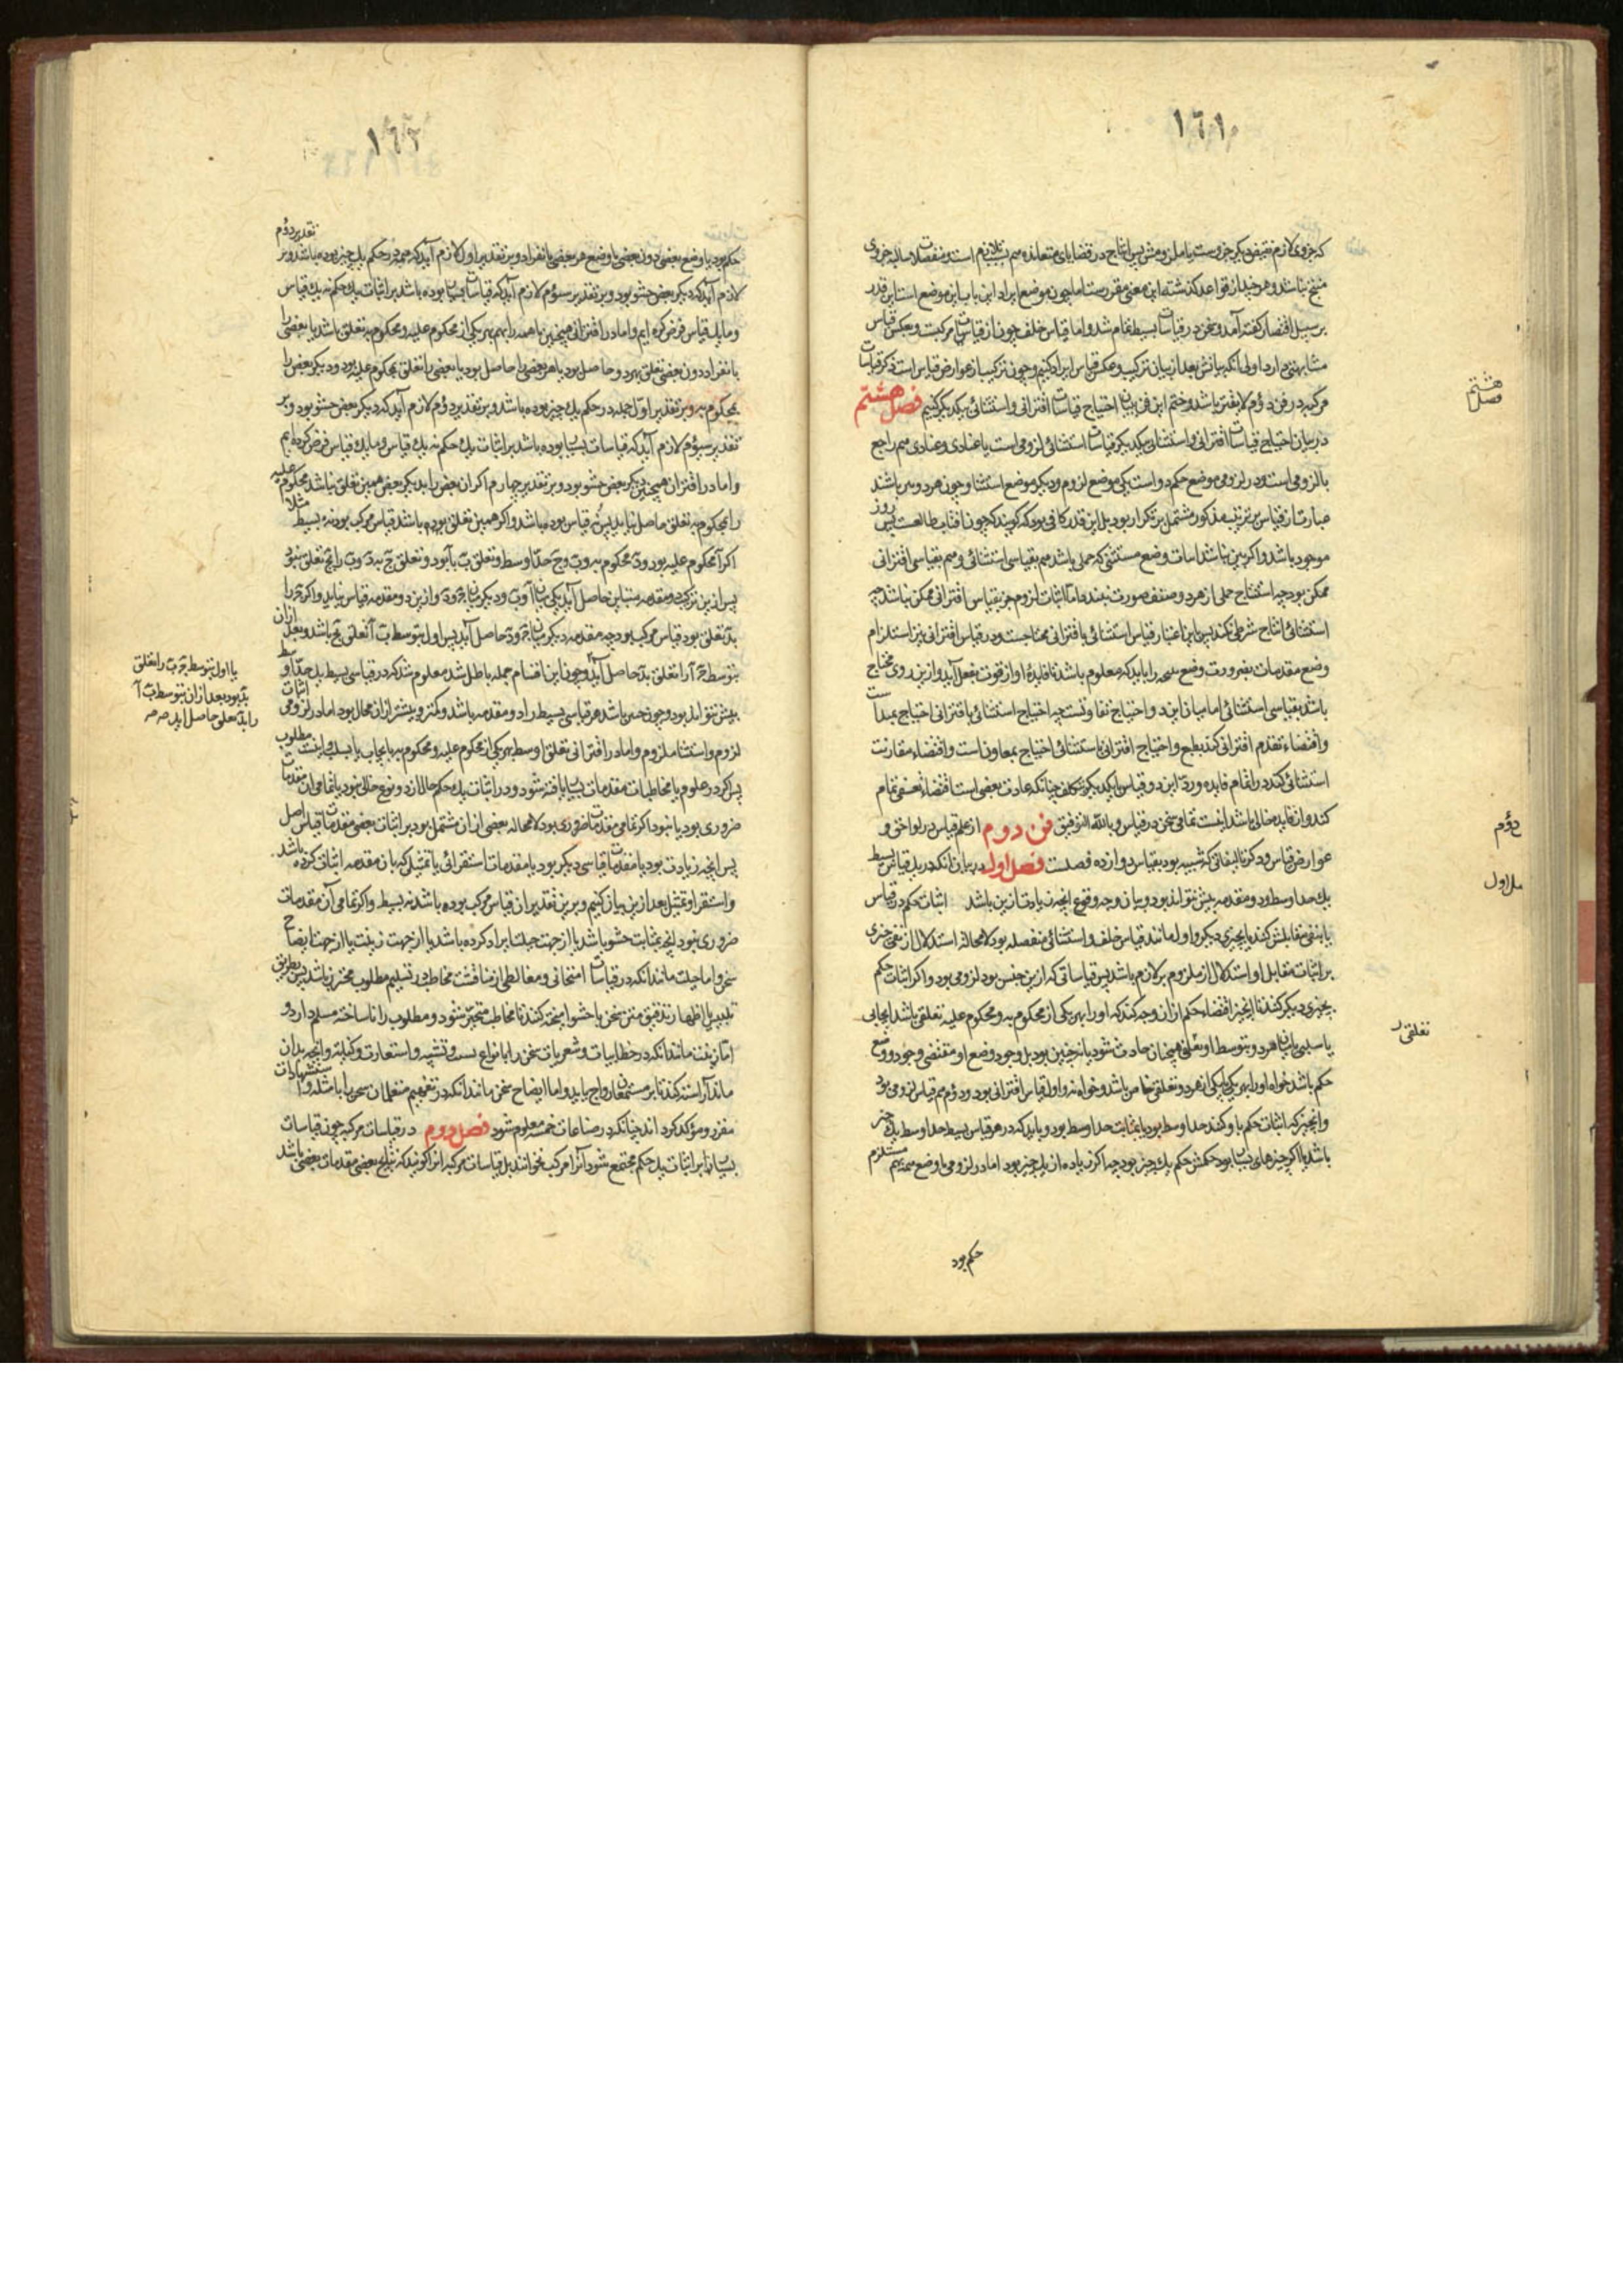 ١٦١
که جزوی لازم نقیض دیکر جزوست با ملزومش پس انتاج در قضایای متعانده هم بسبب تلازم است و منفصلات سالبه جزوی
منتج نباشد و هر چند از قواعد کذشته این معنی مقررست اما چون موضع ایراد این باب این موضع است این قدر
بر سبیل اقتصار کفته آمد و سخن در قیاسات بسیط تمام شد و اما قیاس خلف چون از قیاسات مرکبست و بعکس قیاس
مشابهتی دارد اولی آنکه بیانش بعد از بیان ترکیب و عکس قیاس ایراد کنیم و چون ترکیب از عوارض قیاس است ذکر قیاسات
مرکبه در فن دوم لایقتر باشد و ختم این فن ببیان احتیاج قیاسات اقترانی و استثنائی بیکدیکر کنیم فصل هشتم
در بیان احتیاج قیاسات اقترانی و استثنائی بیکدیکر قیاسات استثنائی لزومی است یا عنادی و عنادی هم راجع
با لزومی است و در لزومی موضع حکم دو است یکی موضع لزوم و دیکر موضع استثنا و چون هر دو بین باشند
عبارت از قیاس بر ترتیب مذکور مشتمل بر تکرار بود بل این قدر کافی بود که کویند که چون آفتاب طالعست پس روز
موجود باشد و اکر بین نباشد اثبات وضع مستثنی که حملی باشد هم بقیاسی استثنائی و هم بقیاسی اقترانی
ممکن بود چه استنتاج حملی از هر دو صنف صورت بندد اما اثبات لزوم جز بقیاس اقترانی ممکن نباشد چه
استثنائی انتاج شرطی نکند پس باین اعتبار قیاس استثنائی باقترانی محتاجست و در قیاس اقترانی نیز استلزام
وضع مقدمات بضرورت وضع نتیجه را باید که معلوم باشد تا فایدۀ او از قوت بفعل آید و ازین روی محتاج
باشد بقیاسی استثنائی اما میان این دو احتیاج تفاوتست چه احتیاج استثنائی باقترانی احتیاج بمبدأست
و اقتضاء تقدم اقترانی کند بطبع و احتیاج اقترانی باستثنائی احتیاج بمعاونست و اقتضاء مقارنت
استثنائی کند در اتمام فایده و رد این دو قیاس با یکدیکر بتکلف چنانکه عادت بعضی است اقتضاء تعسفی تمام
کند و از فایده خالی باشد اینست تمامی سخن در قیاس و بالله التوفیق فن دوم از علم قیاس در لواحق و
عوارض قیاس و ذکر تالیفاتی که شبیه بود بقیاس دوازده فصلست فصل اول در بیان آنکه در یک قیاس بسیط
یک حد اوسط و دو مقدمه بیش نتواند بود و بیان وجه وقوع آنچه زیادت ازین باشد اثبات حکم در قیاس
یا بنفی مقابلش کند یا بچیزی دیکر و اول مانند قیاس خلف و استثنائی منفصله بود و لا محاله استدلال از نفی چیزی
بر اثبات مقابل او استدلال از ملزوم بر لازم باشد پس قیاساتی که ازین جنس بود لزومی بود و اکر اثبات حکم
بچیزی دیکر کند تا آنچیز اقتضاء حکم از آن وجه کند که او را بهر یکی از محکوم به و محکوم علیه تعلقی باشد ایجابی
یا سلبی تا میان هر دو بتوسط او تعلقی همچنان حادث شود یا نه چنین بود بل وجود وضع او مقتضی وجود وضع
حکم باشد خواه او را بهر یکی یا یکی از هر دو تعلقی خاص باشد و خواه نه و اول قیاس اقترانی بود و دوم هم قیاس لزومی بود
و آنچیز که اثبات حکم باو کنند حد اوسط بود یا بمثابت حد اوسط بود و باید که در هر قیاس بسیط حد اوسط یک چیز
باشد یا اکر چیزهای بسیار بود حکمش حکم یک چیز بود چه اکر زیاده از یک چیز بود اما در لزومی با وضع همه بهم مستلزم
حکم بود
هشتم
فصل
دوم
تعلقی
١٦٢
تقدیر دوم
حکم بود یا وضع بعضی دون بعضی یا وضع هر بعضی بانفراد و بر تقدیر اول لازم آید که همه در حکم یک چیز بوده باشد و بر
لازم آید که دیکر بعض حشو بود و بر تقدیر سیوم لازم آید که قیاسات بسیار بوده باشد بر اثبات یک حکم نه یک قیاس
و ما یک قیاس فرض کرده ایم و اما در اقترانی همچنین یا همه را بهم بهر یکی از محکوم علیه و محکوم به تعلق باشد یا بعضی را
بانفراد دون بعضی تعلق بهر دو حاصل بود یا هر بعضی را حاصل بود یا بعضی را تعلق بمحکوم علیه بود و دیکر بعض را
بمحکوم به و بر تقدیر اول جمله در حکم یک چیز بوده باشد و بر تقدیر دوم لازم آید که دیکر بعض حشو بود و بر
تقدیر سیوم لازم آید که قیاسات بسیار بوده باشد بر اثبات یک حکم نه یک قیاس و ما یک قیاس فرض کرده ایم
و اما در اقتران همچنین دیکر بعض حشو بود و بر تقدیر چهارم اکر آن بعض را بدیکر بعض همین تعلق نباشد محکوم علیه
را بمحکوم به تعلق حاصل نیاید پس نه قیاس بوده باشد و اکر همین تعلق بوده باشد قیاس مرکب بود نه بسیط مثلا
اکر آ محکوم علیه بود و د محکوم به و ب و ج حد اوسط و تعلق ب با آ بود و تعلق ج به د و ب را بج تعلق نبود
پس ازین ترکیب دو مقدمه متباین حاصل آید یکی میان آ و ب و دیکر میان ج و د و ازین دو مقدمه قیاس نیاید و اکر ج را
بب تعلق بود قیاس مرکب بود چه مقدمه دیکر میان ج و ب حاصل آید پس اول بتوسط ب آ تعلق بج باشد و بعد از آن
بتوسط ج آ را تعلق بد حاصل آید و چون این اقسام جمله باطل شد معلوم شد که در قیاسی بسیط یک حد اوسط
بیش نتواند بود و چون چنین باشد هر قیاسی بسیط را دو مقدمه باشد و کمتر و بیشتر از آن محال بود اما در لزومی اثبات
لزوم و استثنا ملزوم و اما در اقترانی تعلق اوسط بهر یکی از محکوم علیه و محکوم به بایجاب یا بسلب و اینست مطلوب
پس اکر در علوم یا مخاطبات مقدمات بسیار یافته شود و در اثبات یک حکم حال از دو نوع خالی نبود یا تمامی آن مقدمات
ضروری بود یا نبود اکر تمامی مقدمات ضروری بود لا محاله بعضی از آن مشتمل بود بر اثبات بعضی مقدمات قیاس اصل
پس آنچه زیادت بود یا مقدمات قیاسی دیکر بود یا مقدمات استقرائی یا تمثیلی که بآن مقدمه اثبات کرده باشد
و استقرا و تمثیل بعد ازین بیان کنیم و برین تقدیر آن قیاس مرکب بوده باشد نه بسیط و اکر تمامی آن مقدمات
ضروری نبود آنچه بمثابت حشو باشد یا از جهت حیلت ایراد کرده باشد یا از جهت زینت یا از جهت ایضاح
سخن و اما حیلت مانند آنکه در قیاسات امتحانی و مغالطی از مناقشت مخاطب در تسلیم مطلوب محترز باشد پس بطریق
تلبیس یا اظهار تدقیق متن سخن با حشو آمیخته کنند تا مخاطب متحیر شود و مطلوب را ناساخته مسلم دارد و
اما زینت مانند آنکه در خطابیات و شعریات سخن را بانواع بسط و تشبیه و استعارت و کنایه و آنچه بدان
ماند آراسته کنند تا بر مستمعان رواج یابد و اما ایضاح سخن مانند آنکه در تفهیم متعلمان سخن را بامثله و استشهادات
مقرر و مؤکد کرداند چنانکه در صناعات خمسه معلوم شود فصل دوم در قیاسات مرکبه چون قیاسات
بسیار بر اثبات یک حکم مجتمع شود آنرا مرکب نخوانند بل قیاسات مرکبه آنرا کویند که نتایج بعضی مقدمات بعضی باشد
یا اول بتوسط ج ب را تعلق
بد بود بعد از آن بتوسط ب آ
را بد تعلق حاصل آید صح